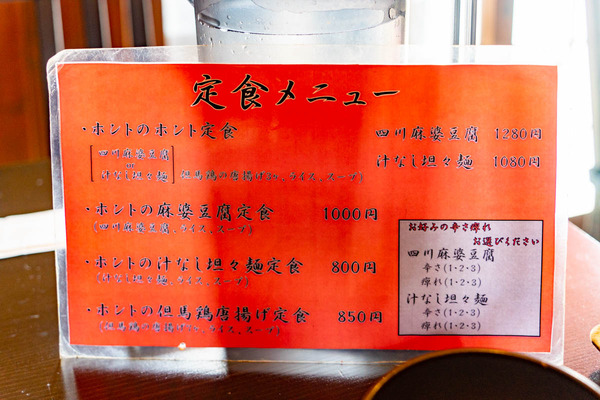 定食メニュー
・ホントのホント定食
四川麻婆豆腐 1280円
汁なし坦々麺 1080円
四川麻婆豆腐
or
汁なし坦々麺
但馬鶏の唐揚げ、ライス、スープ
・ホントの麻婆豆腐定食 1000円
(四川麻婆豆腐、ライス、スープ)
・ホントの汁なし坦々麺定食 800円
(汁なし坦々麺、ライス、スープ)
・ホントの但馬鶏唐揚げ定食 850円
(但馬鶏の唐揚げ、ライス、スープ)
お好みの辛さ痺れ
お選びください
四川麻婆豆腐
辛さ(1・2・3)
痺れ(1・2・3)
汁なし坦々麺
辛さ(1・2・3)
痺れ(1・2・3)